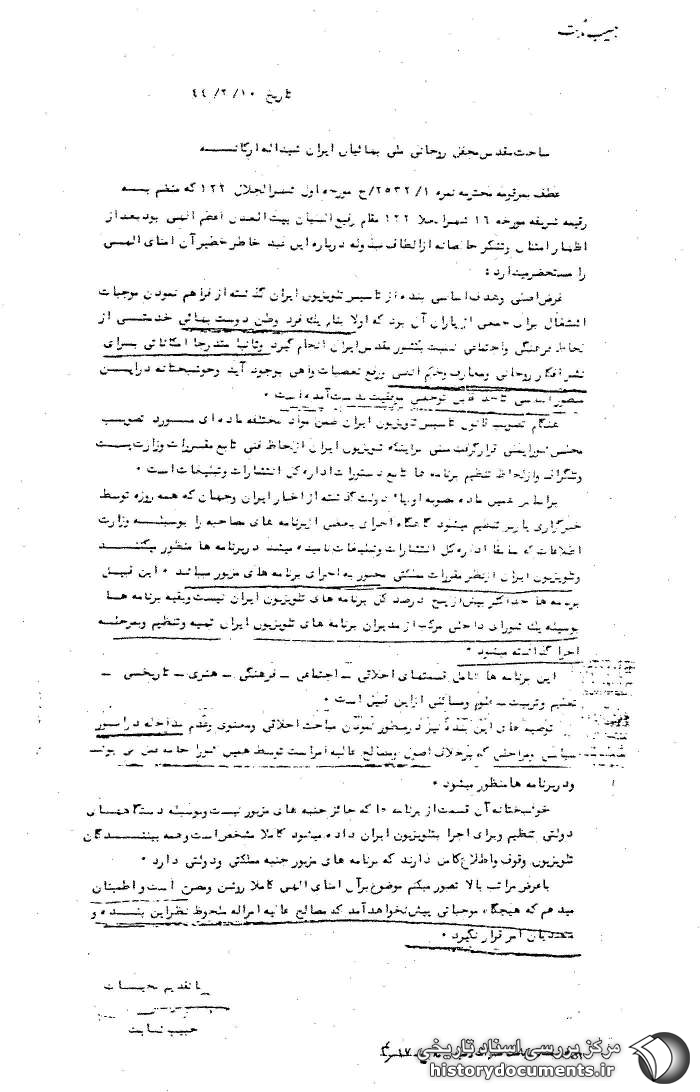 حبیب ثابت
تاریخ ۱۰/ ۲/ ۴۴
ساحت مقدس محفل روحانی ملی بهائیان ایران شیداله ارکانه
عطف بمرقومه محترمه نمره ۲۵۳۲/۱/ح مورخه اول شهرالجلال ۱۲۲ که منضم به
رقیمه شریفه مورخه ۱۶ شهر ۱۲۲ مقام رفیع البنیان بیت العدل اعظم الهی بود بعد از
اظهار امتنان وتشکر خالصانه از الطاف مبذوله درباره این عبد خاطر خطیر آن امنای الهی
را مستحضر میدارد :
غرض اصلی وهدف اساسی بنده از تاسیس تلویزیون ایران گذشته از فراهم نمودن موجبات
اشتغال برای جمعی از یاران آن بود که اولا بنام یک فرد وطن دوست بهائی خدمتی از
لحاظ فرهنگی واجتماعی نسبت بکشور مقدس ایران انجام گیرد وثانیا متدرجا امکاناتی برای
نشر افکار روحانی ومعارف وحکم الهی ورفع تعصبات واهی بوجود آید وخوشبختانه دراین
منظور اساسی تاحد قابل توجهی موفقیت بدست آمده است .
هنگام تصویب قانون تاسیس تلویزیون ایران ضمن مواد مختلفه ماده ای مورد تصویب
مجلس شورایملی قرار گرفت مبنی براینکه تلویزیون ایران از لحاظ فنی تابع مقررات وزارت پست
وتلگراف واز لحاظ تنظیم برنامه ها تابع دستورات اداره کل انتشارات وتبلیغات است .
براساس همین ماده مصوبه اولیاء دولت گذشته از اخبار ایران وجهان که همه روزه توسط
خبرگزاری پارس تنظیم میشود گاهگاه اجرای بعضی از برنامه های مصاحبه را بوسیله وزارت
اطلاعات که سابقا اداره کل انتشارات وتبلیغات نامیده میشد دربرنامه ها منظور میکنند
وتلویزیون ایران ازنظر مقررات مملکتی مجبور به اجرای برنامه های مزبور میباشد . این قبیل
برنامه ها حداکثر بیش از پنج درصد کل برنامه های تلویزیون ایران نیست وبقیه برنامه ها
بوسیله یک شورای داخلی مرکب از مدیران برنامه های تلویزیون ایران تهیه وتنظیم وبمرحله
اجرا گذاشته میشود .
این برنامه ها شامل قسمتهای اخلاقی - اجتماعی - فرهنگی - هنری - تاریخی -
تعلیم وتربیت - علوم ومسائلی از این قبیل است .
توصیه های این بنده نیز درمنظور نمودن مباحث اخلاقی ومعنوی وعدم مداخله درامور
سیاسی ومراحلی که برخلاف اصول ومصالح عالیه امراست توسط همین شورا جامه عمل می پوشد
ودر برنامه ها منظور میشود .
خوشبختانه آن قسمت از برنامه ها که حائز جنبه های مزبور نیست وبوسیله دستگاههای
دولتی تنظیم وبرای اجرا بتلویزیون ایران داده میشود کاملا مشخص است وهمه بینندگان
تلویزیون وقوف واطلاع کامل دارند که برنامه های مزبور جنبه مملکتی ودولتی دارد .
باعرض مراتب بالا تصور میکنم موضوع برآن امنای الهی کاملا روشن ومبرهن است واطمینان
میدهم که هیچگاه موجباتی پیش نخواهد آمد که مصالح عالیه امراله ملحوظ نظر این بنده و
متصدیان امر قرار نگیرد .
با تقدیم تحیات
حبیب ثابت
مرکز بررسی اسناد تاریخی
historydocuments.ir